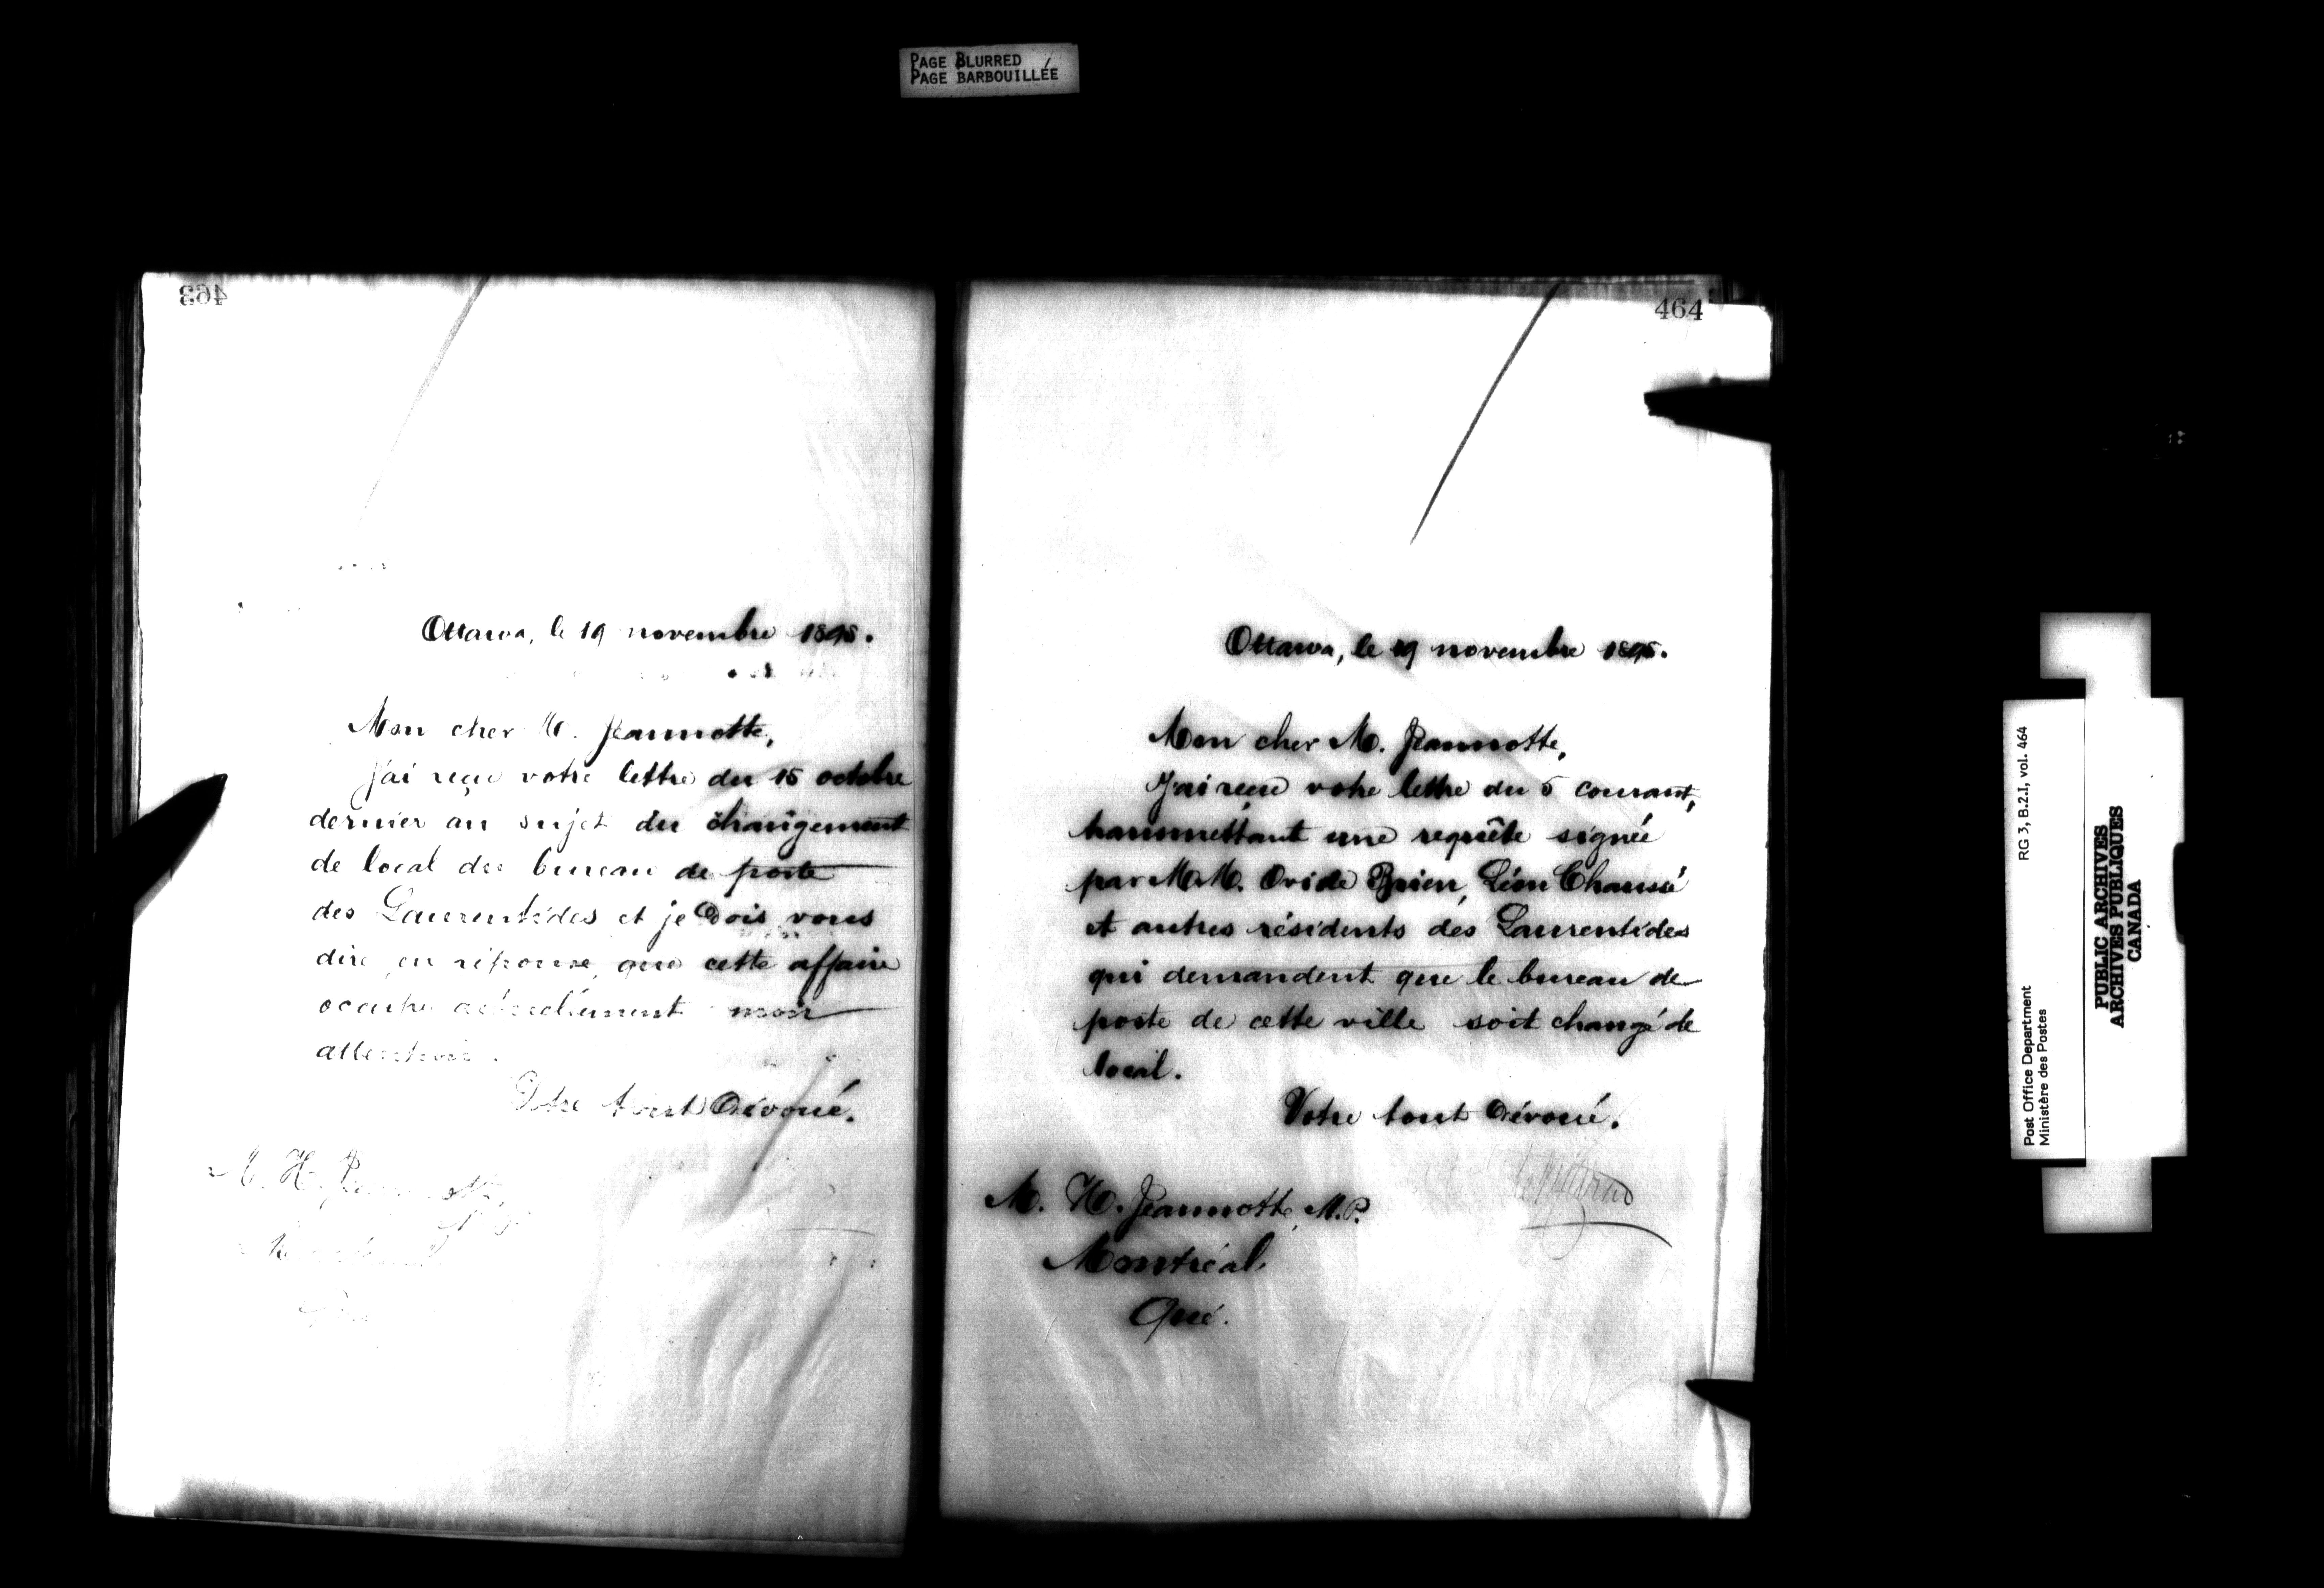 PAGE BLURRED
PAGE BARBOUILLÉE
463
Ottawa, le 19 novembre 1895.
Mon cher M. Jeannotte,
J'ai reçu votre lettre du 15 octobre
dernier au sujet du changement
de local du bureau de poste
des Laurentides et je dois vous
dire, en réponse, que cette affaire
occupe actuellement mon
attention.
Votre tout dévoué.
M. H. Jeannotte,
464
Ottawa, le 19 novembre 1895.
Mon cher M. Jeannotte,
J'ai reçu votre lettre du 5 courant,
transmettant une requête signée
par M.M. Ovide Brien, Léon Chaussé
et autres résidents des Laurentides
qui demandent que le bureau de
poste de cette ville soit changé de
local.
Votre tout dévoué.
M. H. Jeannotte, M.P.
Montréal
Qué.
Post Office Department
Ministère des Postes
RG 3, B.2.I, vol. 464
PUBLIC ARCHIVES
ARCHIVES PUBLIQUES
CANADA